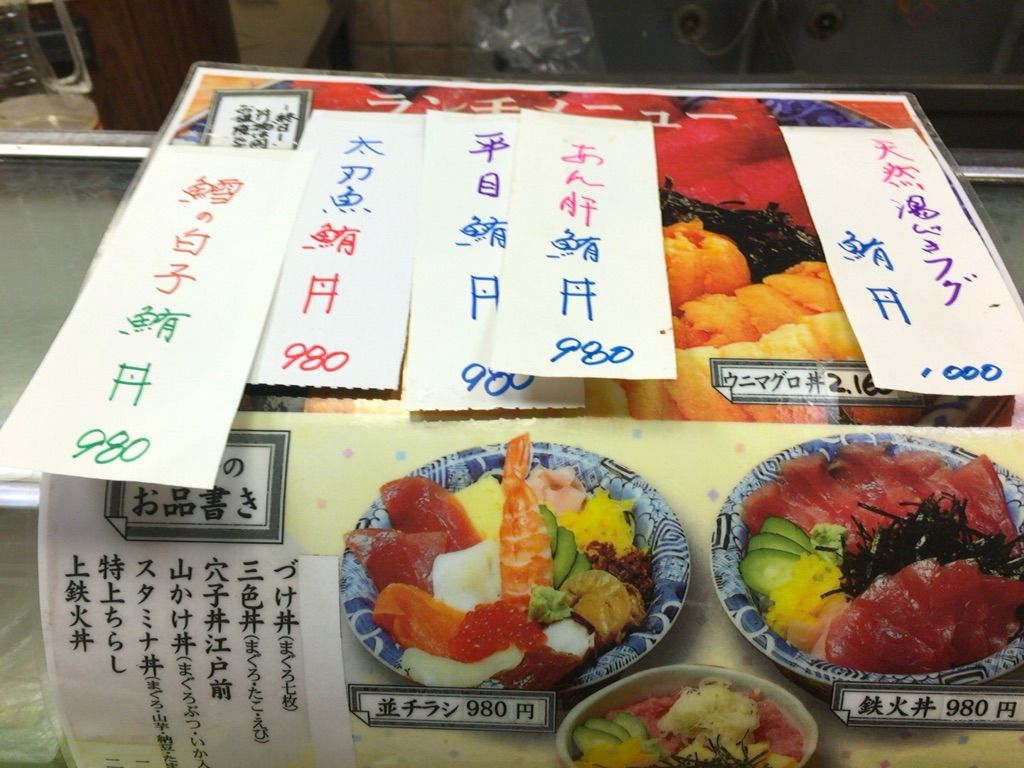 ランチメニュー
鱈の白子
鮪
丹
980
太刃魚
鮪
丹
980
平目
鮪
丹
980
あん肝
鮪
丹
980
天然湯びきフグ
鮪
丹
1000
ウニマグロ丼 2.16
の
お品書き
づけ丼(まぐろ七枚)
三色丼(まぐろ・たこ・えび)
穴子丼江戸前
山かけ丼(まぐろぶつ・いか入
スタミナ丼(まぐろ・山芋・納豆・たま
特上ちらし
上鉄火丼
並チラシ 980円
鉄火丼 980円